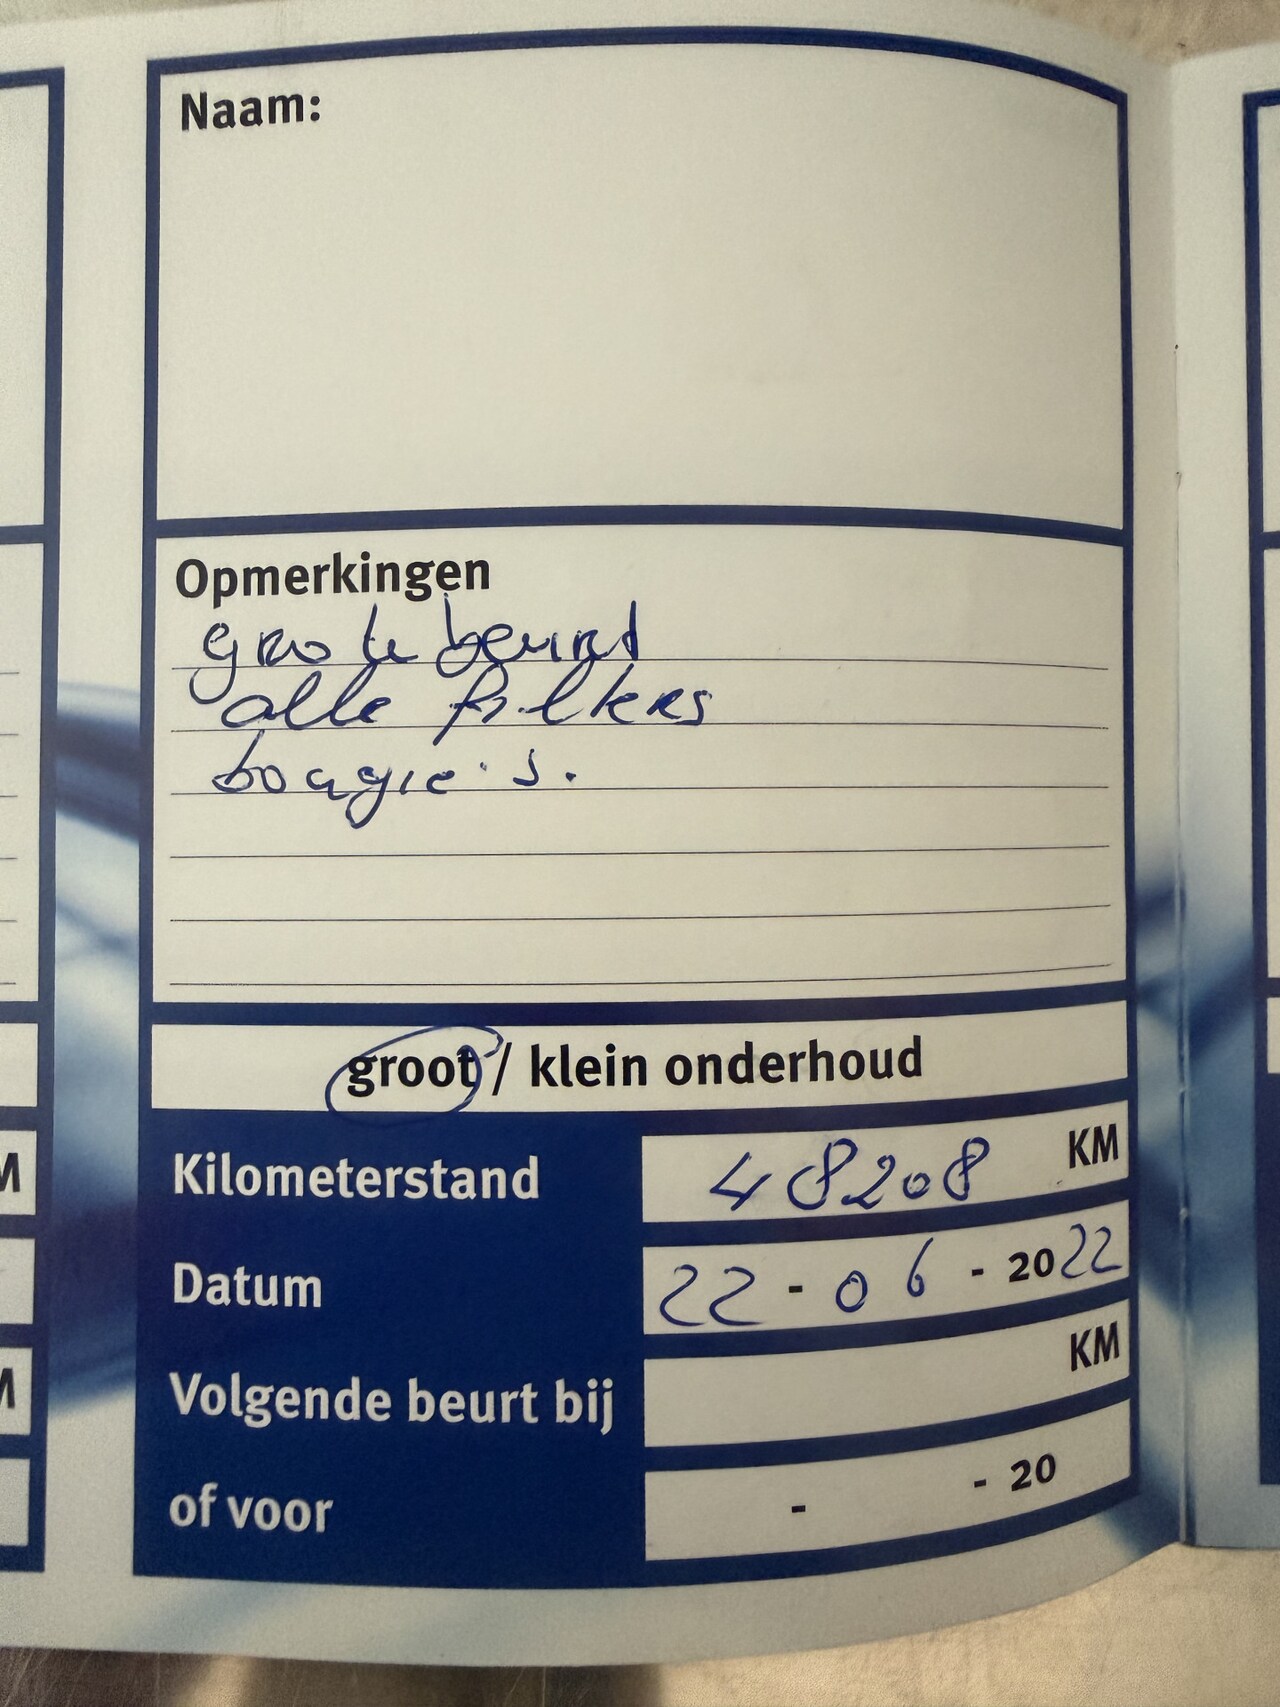 Naam:
Opmerkingen
grote beurt
alle filters
bougie's.
groot / klein onderhoud
Kilometerstand 48208 KM
Datum 22 - 06 - 2022
Volgende beurt bij KM
of voor - - 20
M
M